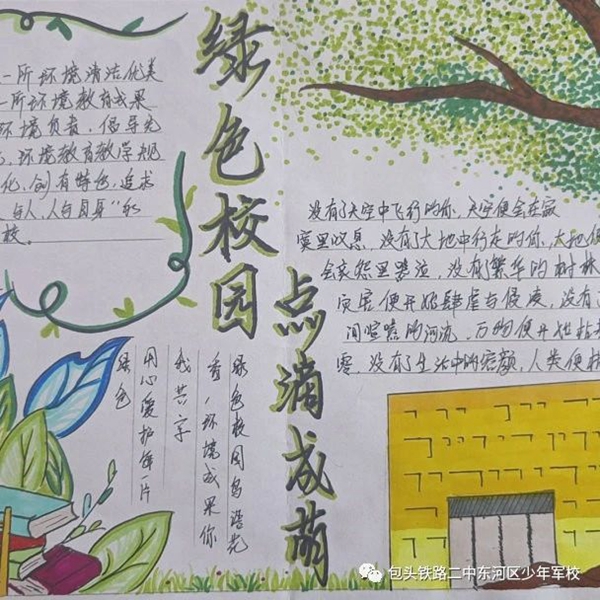 绿色校园
点滴成萌
一所环境清洁优美
一所环境教育成果
环境负责，倡导先
，环境教育教学规
化，创有特色，追求
与人，人与自身"的
校。
没有了天空中飞行的你，天空便会在寂
寞里叹息，没有了大地中行走的你，大地便
会哀怨里哭泣，没有了繁华的树林
灾害便开始肆虐与侵凌，没有了
间喧嘻的河流，万物便开始枯
零，没有了生活中的容颜，人类便
绿色校园鸟语花
香，环境成果你
我共享
用心爱护每一片
绿色
包头铁路二中东河区少年军校